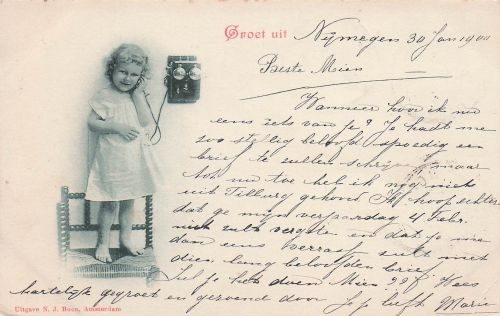 Groet uit Nijmegen 30 Jan 1900
Beste Mien
Wanneer hoor ik nu
eens iets van je? Je hadt me
zoo stellig beloofd spoedig een
brief te zullen schrijven maar
tot nu toe heb ik nog niet
uit Tilburg gehoord. Ik hoop echter
dat ge mijn verjaardag 4 Febr.
niet zult vergeten en dat je me
dan eens verrast zult met
dien lang beloofden brief.
Zul je het doen Mien? Wees
hartelijk gegroet en gezoend door Je liefh Marie
Uitgave N. J. Boon, Amsterdam